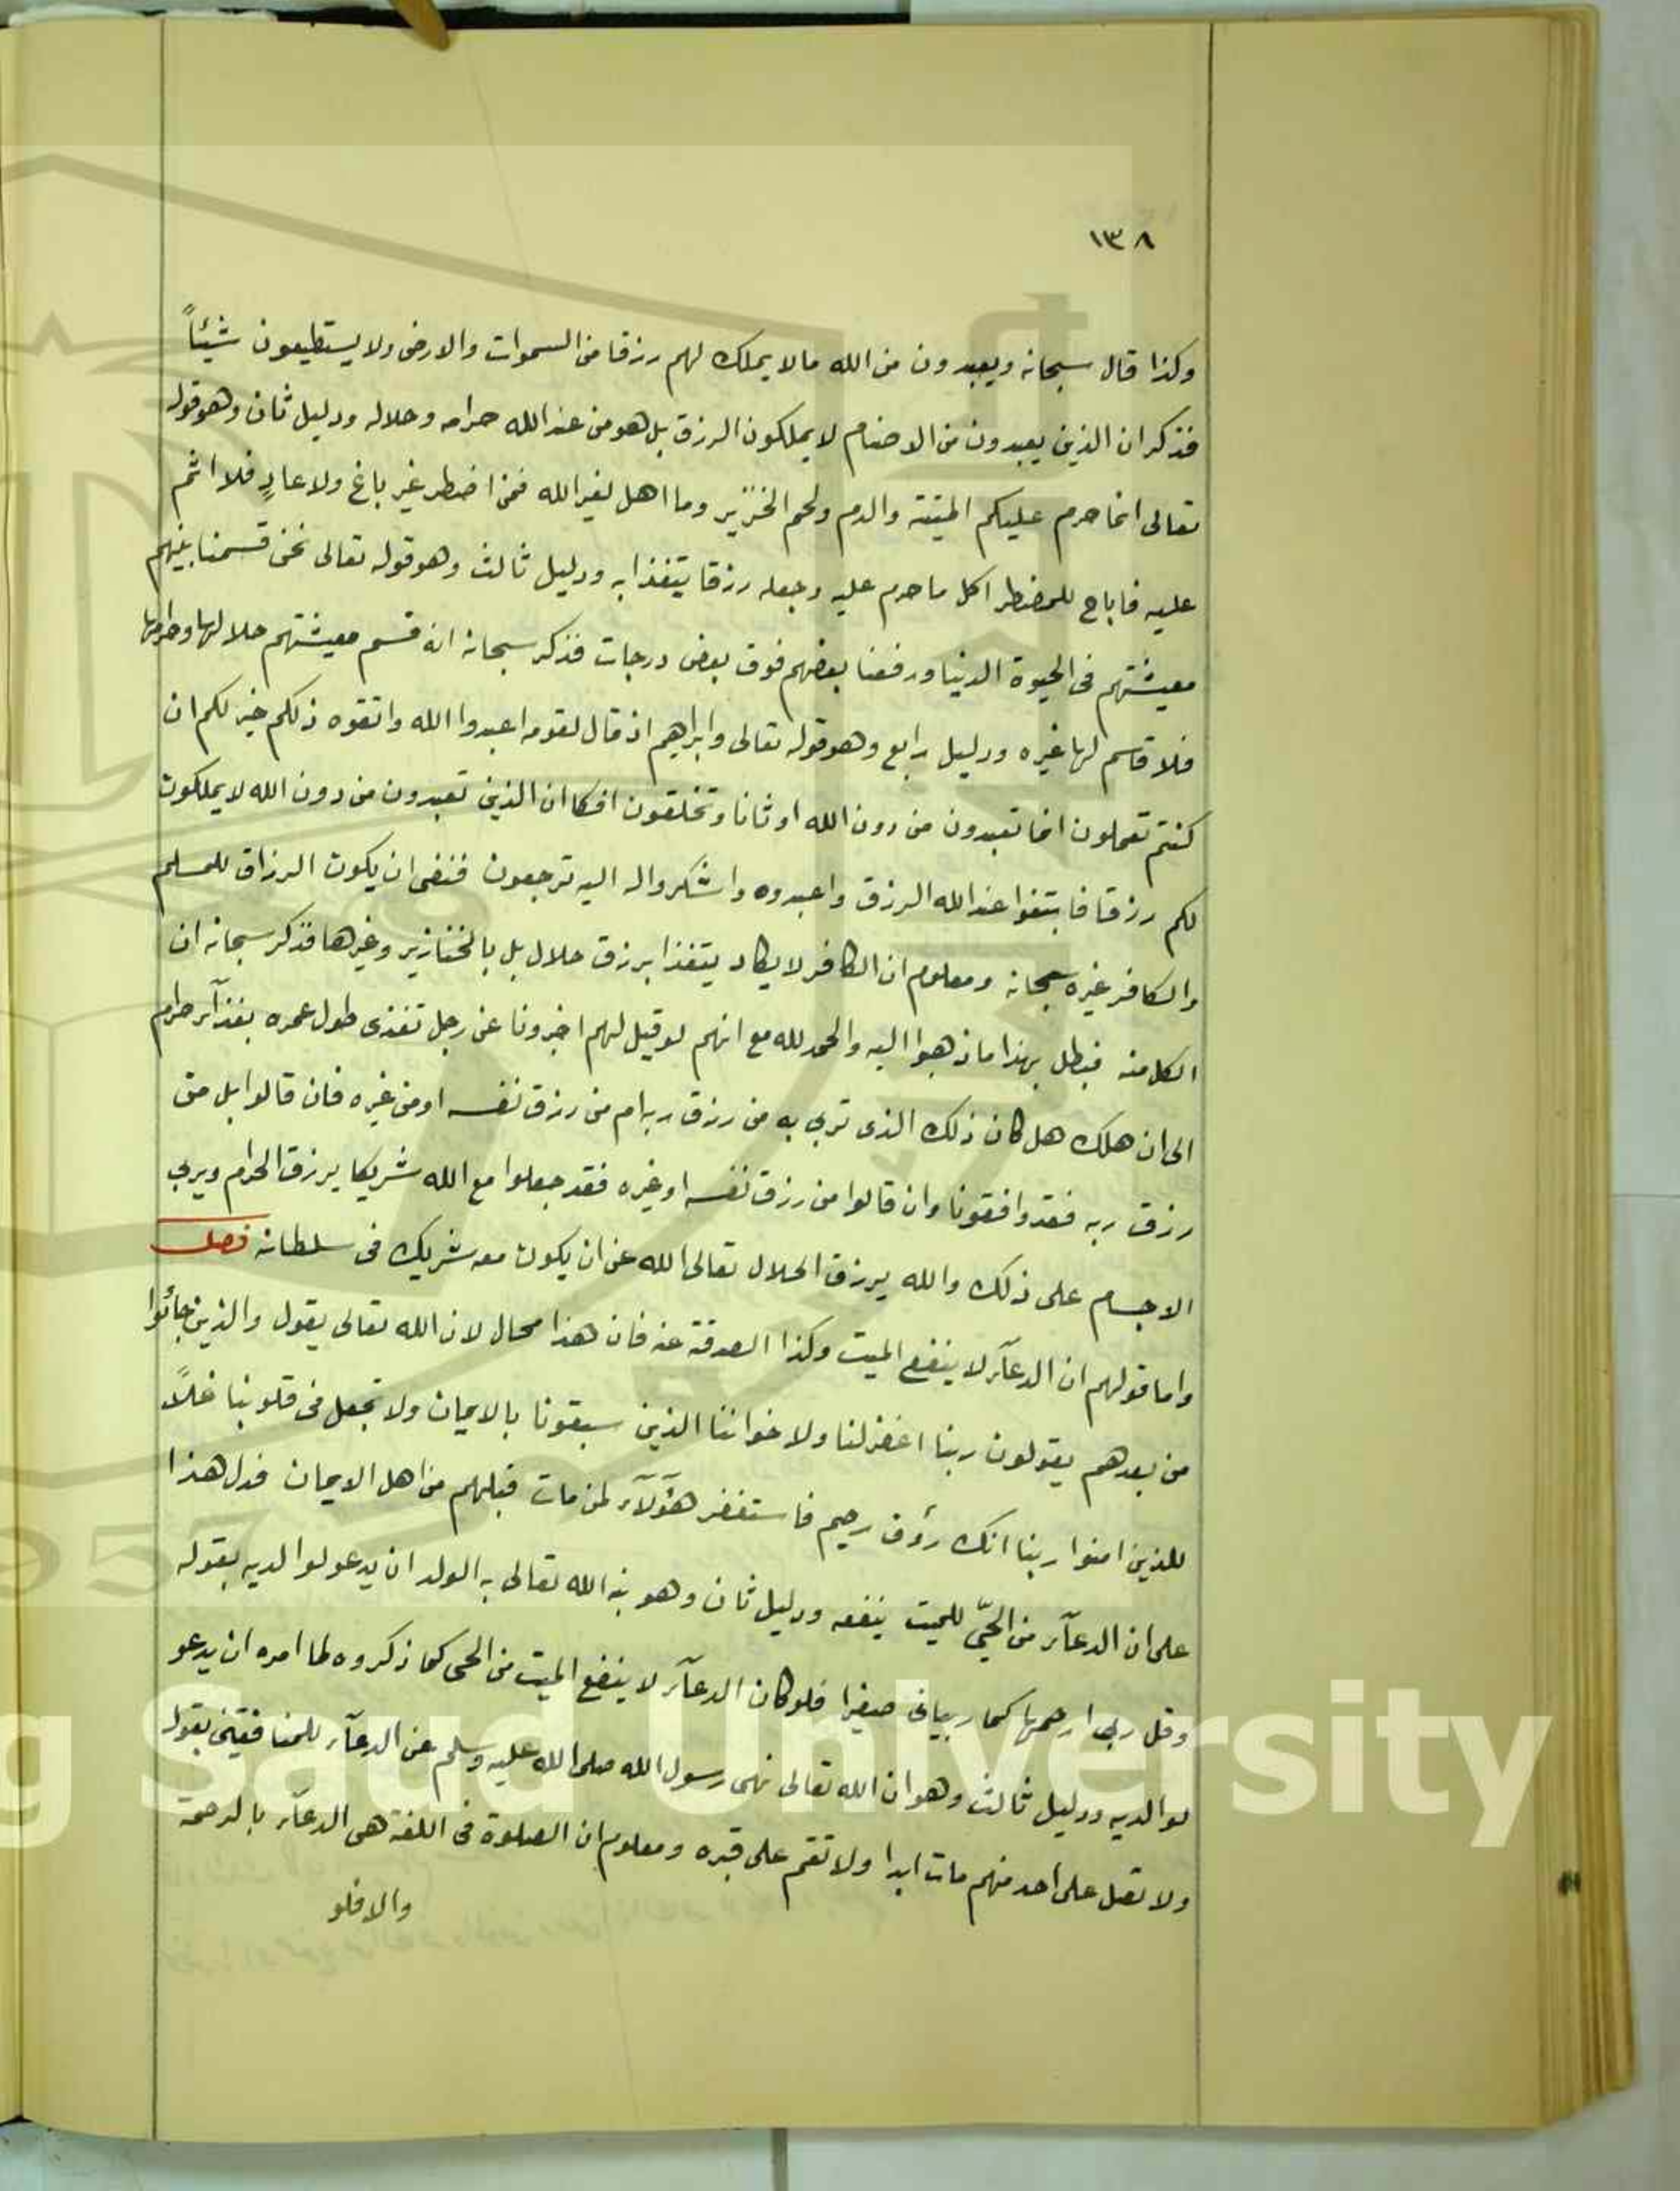 ١٣٨
وكذا قال سبحانه ويعبدون من الله مالا يملك لهم رزقا من السموات والارض ولا يستطيعون شيئاً
فذكر ان الذين يعبدون من الاصنام لا يملكون الرزق بل هو من عند الله حرامه وحلاله ودليل ثان وهو قوله
تعالى انما حرم عليكم الميتة والدم ولحم الخنزير وما اهل لغير الله فمن اضطر غير باغ ولا عادٍ فلا اثم
عليه فاباح للمضطر اكل ما حرم عليه وجعله رزقا يتغذا به ودليل ثالث وهو قوله تعالى نحن قسمنا بينهم
معيشتهم فى الحيوة الدنيا ورفعنا بعضهم فوق بعض درجات فذكر سبحانه انه قسم معيشتهم حلالها وحرامها
فلا قاسم لها غيره ودليل رابع وهو قوله تعالى وابراهيم اذ قال لقومه اعبدوا الله واتقوه ذلكم خير لكم ان
كنتم تعملون انما تعبدون من دون الله اوثانا وتخلقون افكا ان الذين تعبدون من دون الله لا يملكون
لكم رزقا فابتغوا عند الله الرزق واعبدوه واشكروا له اليه ترجعون فنفى ان يكون الرزاق للمسلم
والكافر غيره سبحانه ومعلوم ان الكافر لا يكاد يتغذا برزق حلال بل بالخنازير وغيرها فذكر سبحانه ان
الكل منه فبطل بهذا ما ذهبوا اليه والحمد لله مع انهم لو قيل لهم اخبرونا عن رجل تغذى طول عمره بغذآء حرام
الى ان هلك هل كان ذلك الذى تربى به من رزق ربه ام من رزق نفسه او من غيره فان قالوا بل من
رزق ربه فقد وافقونا وان قالوا من رزق نفسه او غيره فقد جعلوا مع الله شريكا يرزق الحرام ويربى
الاجسام على ذلك والله يرزق الحلال تعالى الله عن ان يكون معه شريك فى سلطانه فصل
واما قولهم ان الدعآء لا ينفع الميت وكذا الصدقة عنه فان هذا محال لان الله تعالى يقول والذين جائوا
من بعدهم يقولون ربنا اغفر لنا ولاخواننا الذين سبقونا بالايمان ولا تجعل فى قلوبنا غلاً
للذين امنوا ربنا انك رؤف رحيم فاستغفر هؤلآء لمن مات قبلهم من اهل الايمان فدل هذا
على ان الدعآء من الحىّ للميت ينفعه ودليل ثان وهو نبه الله تعالى به الولد ان يدعو لوالديه بقوله
وقل ربى ارحمهما كما ربيانى صغيرا فلو كان الدعآء لا ينفع الميت من الحى كما ذكروه لما امره ان يدعو
لوالديه ودليل ثالث وهو ان الله تعالى نهى رسول الله صلى الله عليه وسلم عن الدعآء للمنافقين بقوله
ولا تصل على احد منهم مات ابدا ولا تقم على قبره ومعلوم ان الصلوة فى اللغة هى الدعآء بالرحمة
والا فلو
g Saud University
957